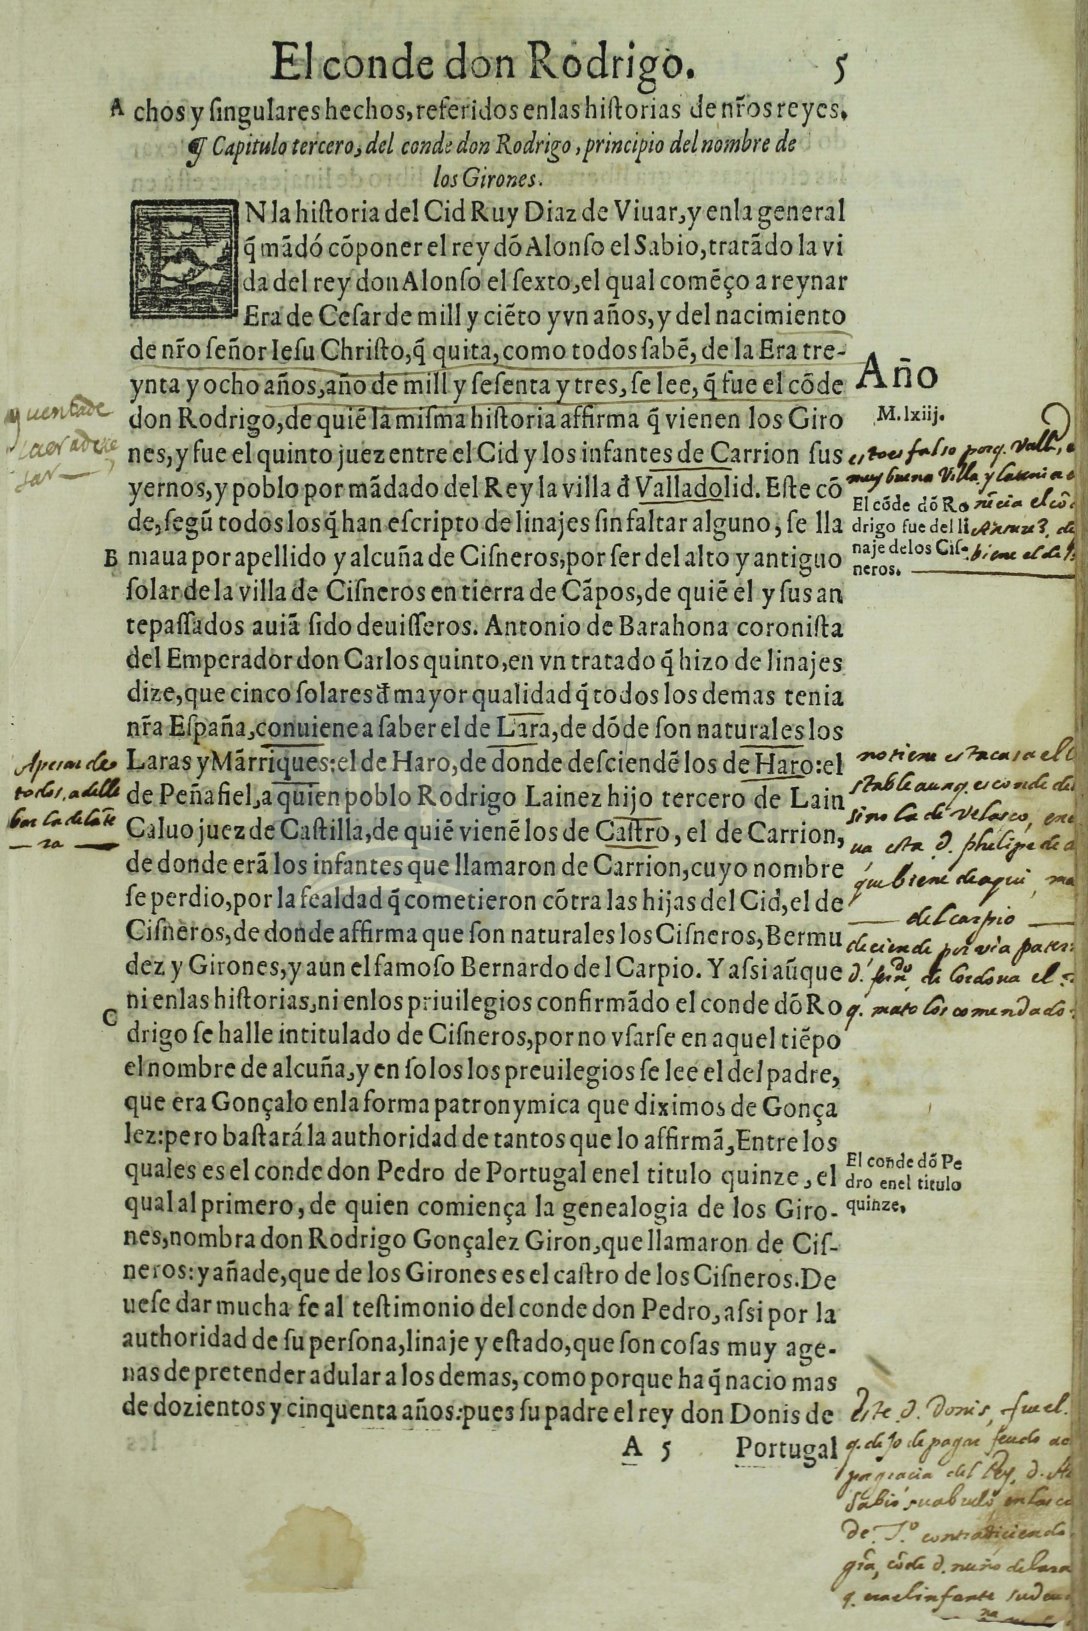 El conde don Rodrigo. 5
A chos y ſingulares hechos, referidos enlas hiſtorias de nr̃os reyes.
¶ Capitulo tercero, del conde don Rodrigo, principio del nombre de
los Girones.
EN la hiſtoria del Cid Ruy Diaz de Viuar, y enla general
q̃ mãdó cõponer el rey dõ Alonſo el Sabio, tratãdo la vi
da del rey don Alonſo el ſexto, el qual comẽço a reynar
Era de Ceſar de mill y ciẽto y vn años, y del nacimiento
de nr̃o ſeñor Ieſu Chriſto, q̃ quita, como todos ſabẽ, de la Era tre-
ynta y ocho años, año de mill y ſeſenta y tres, ſe lee, q̃ fue el cõde
Año
M.lxiij.
don Rodrigo, de quiẽ la miſma hiſtoria affirma q̃ vienen los Giro
nes, y fue el quinto juez entre el Cid y los infantes de Carrion ſus
yernos, y poblo por mãdado del Rey la villa đ Valladolid. Eſte cõ
de, ſegũ todos los q̃ han eſcripto de linajes ſin faltar alguno, ſe lla
B maua por apellido y alcuña de Ciſneros, por ſer del alto y antiguo
ſolar de la villa de Ciſneros en tierra de Cãpos, de quiẽ el y ſus an
tepaſſados auiã ſido deuiſſeros. Antonio de Barahona coroniſta
cuentade
esto es falso porq. Vallid,
muy buena Villa y
El cõde dõ Ro
drigo fue del li
naje de los Ciſ-
neros.
del Emperador don Carlos quinto, en vn tratado q̃ hizo de linajes
dize, que cinco ſolares đ mayor qualidad q̃ todos los demas tenia
nr̃a Eſpaña, conuiene a ſaber el de Lara, de dõde ſon naturales los
Laras y Mãrriques: el de Haro, de donde deſciendẽ los de Haro: el
de Peñafiel, a quien poblo Rodrigo Lainez hijo tercero de Lain
Caluo juez de Caſtilla, de quiẽ vienẽ los de Caſtro, el de Carrion,
de donde erã los infantes que llamaron de Carrion, cuyo nombre
ſe perdio, por la fealdad q̃ cometieron cõtra las hijas del Cid, el de
Ciſneros, de donde affirma que ſon naturales los Ciſneros, Bermu
dez y Girones, y aun el famoſo Bernardo del Carpio. Y aſsi aũque
C ni enlas hiſtorias, ni enlos priuilegios confirmãdo el conde dõ Ro
Apesar de
todos, a de lle
bar la delãte
ra
no tiene esta casa el
stable aunq. es conde de
sino la de Velasco,
esta d. phelipe de
que biene de aqui,
del carpio
deciende por via
de Cordoua el
q. mato los comendado
drigo ſe halle intitulado de Ciſneros, por no vſarſe en aquel tiẽpo
el nombre de alcuña, y en ſolos los preuilegios ſe lee el del padre,
que era Gonçalo enla forma patronymica que diximos de Gonça
lez: pero baſtará la authoridad de tantos que lo affirmã, Entre los
quales es el conde don Pedro de Portugal enel titulo quinze, el
qual al primero, de quien comiença la genealogia de los Giro-
El conde dõ Pe
dro enel titulo
quinze.
nes, nombra don Rodrigo Gonçalez Giron, que llamaron de Ciſ-
neros: y añade, que de los Girones es el caſtro de los Ciſneros. De
ueſe dar mucha fe al teſtimonio del conde don Pedro, aſsi por la
authoridad de ſu perſona, linaje y eſtado, que ſon coſas muy age-
nas de pretender adular a los demas, como porque ha q̃ nacio mas
de dozientos y cinquenta años: pues ſu padre el rey don Donis de
A 5 Portugal
este d. Donis, fue el
q. dejo de pagar feudo
por gracia del Rey, d.
Sabio su abuelo,
de T.º contradiciendo
d. nuño de lara
q. era el infante